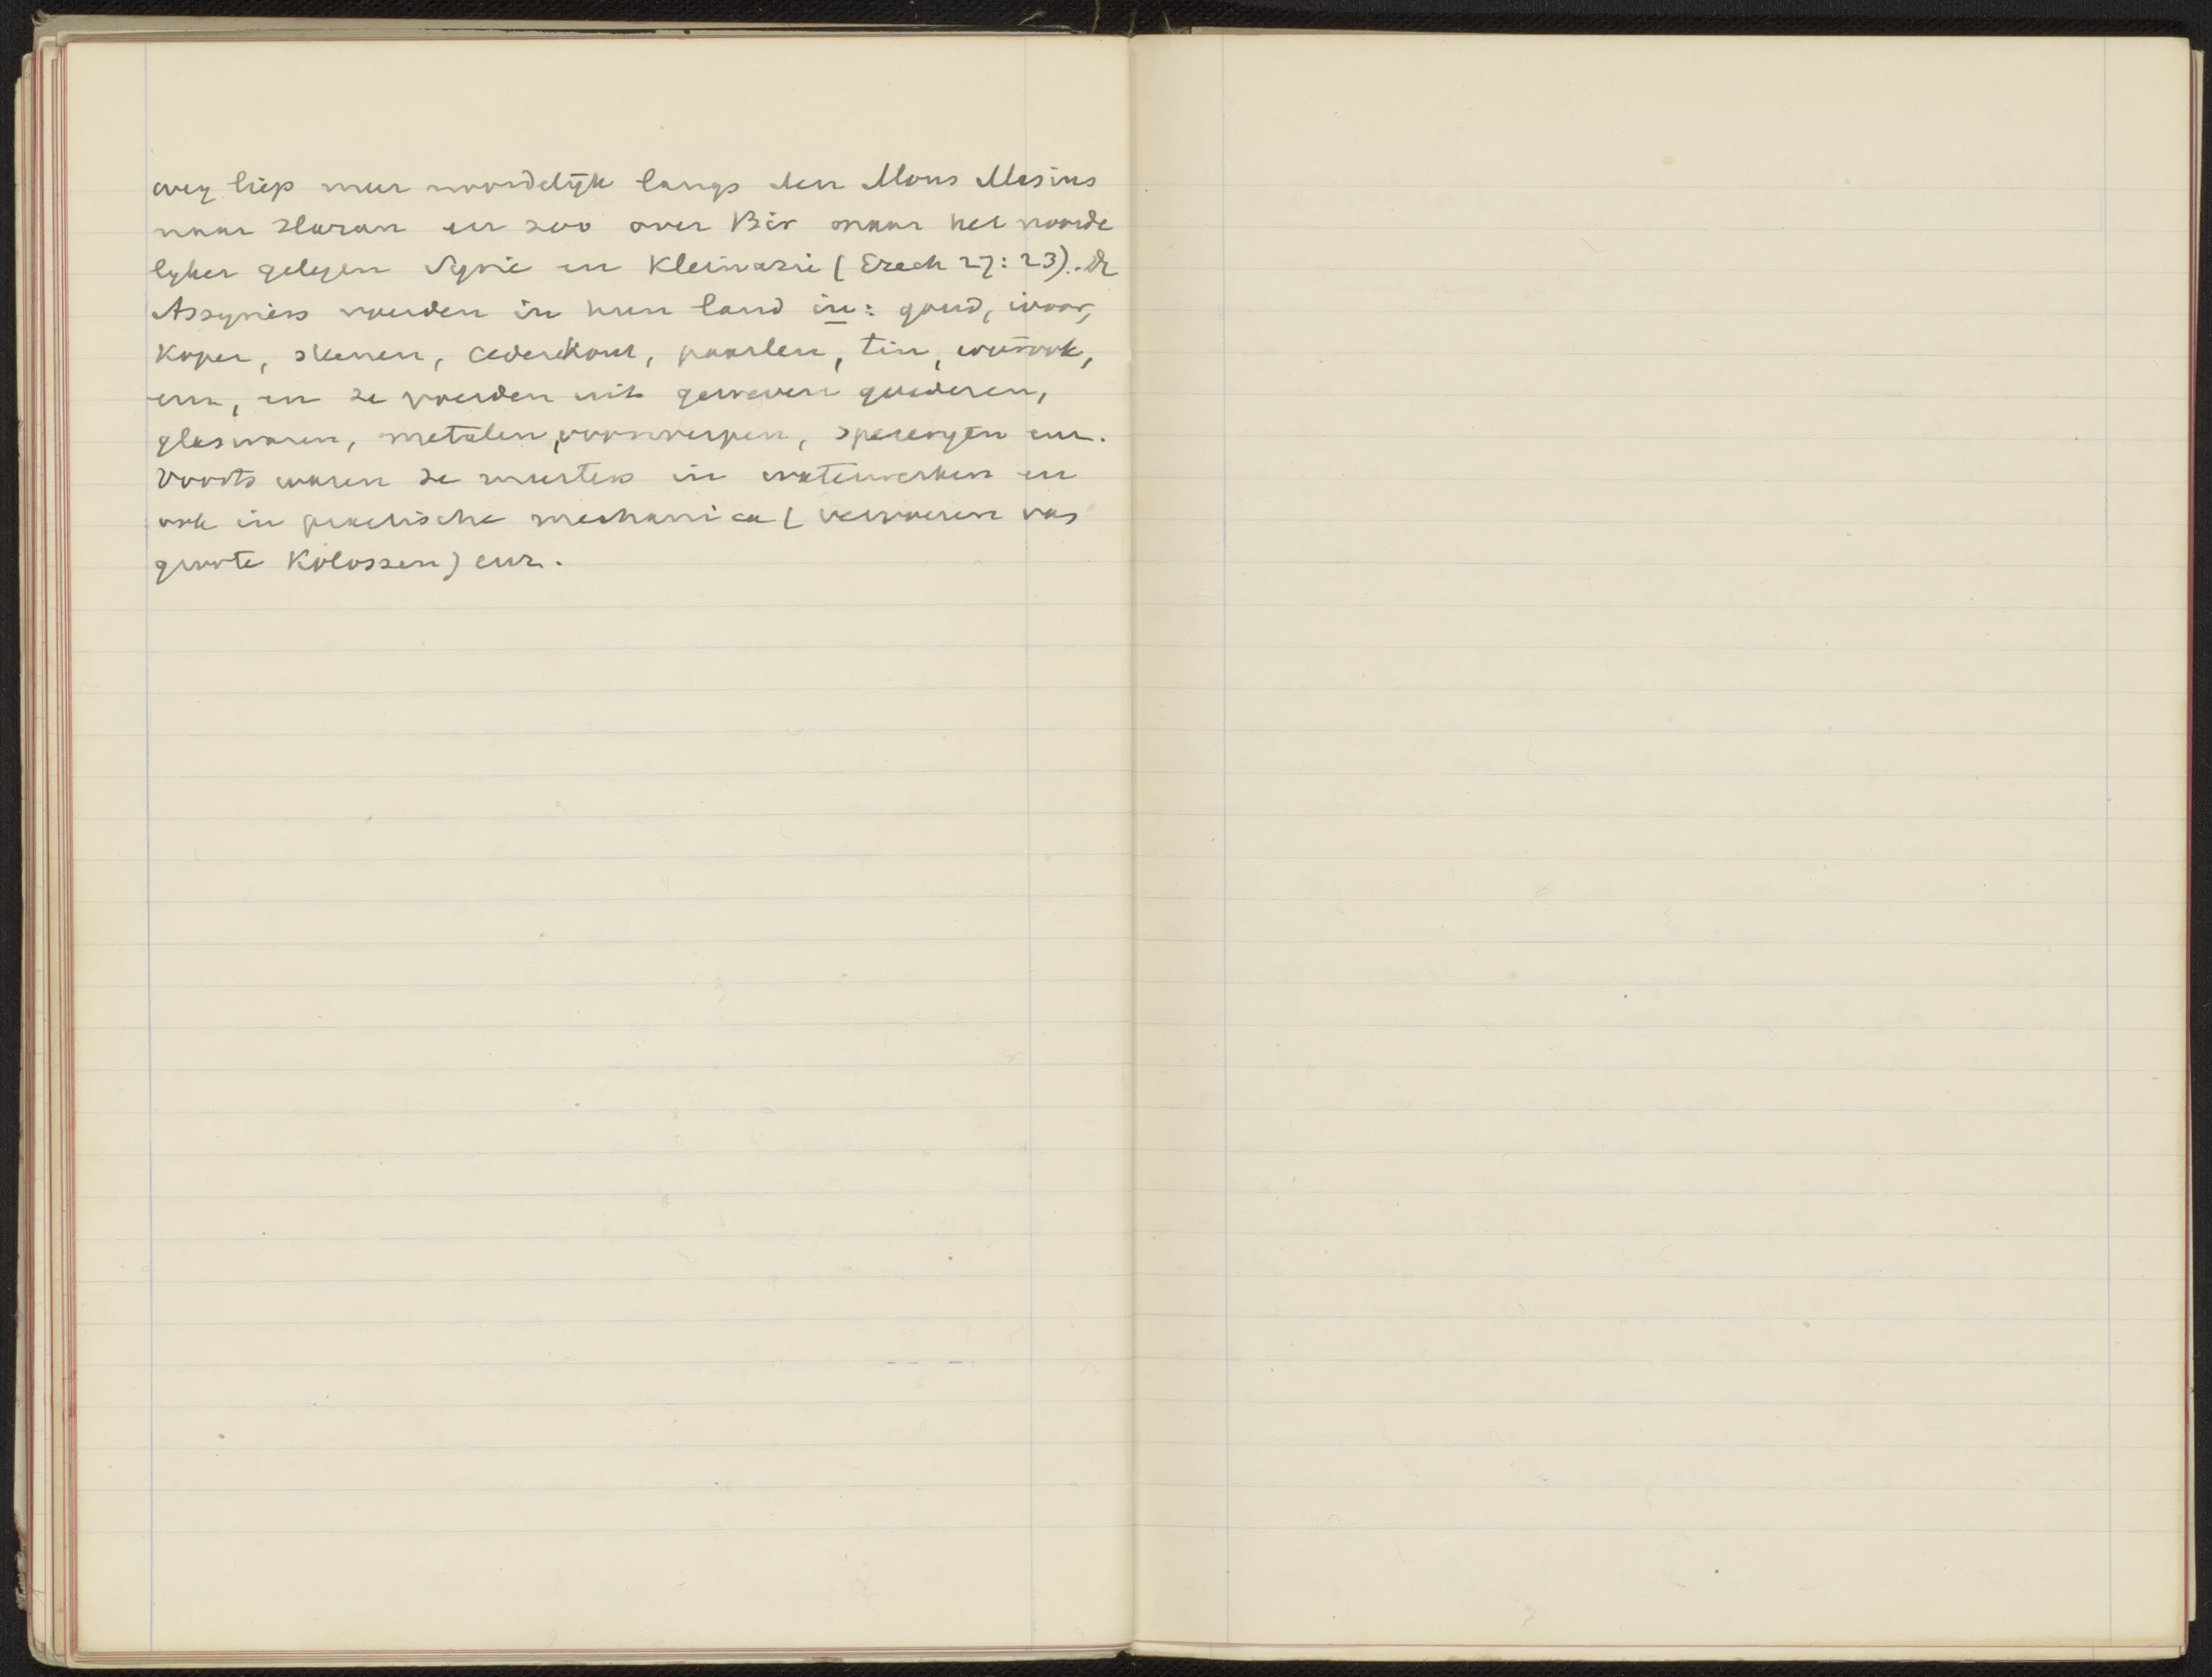 weg liep meer noordelijk langs den Mons Masius
naar Haran en zoo over Bir naar het noorde
lyker gelegen Syrie en Kleinazie (Ezech 27:23). De
Assyriers voerden in hun land in: goud, ivoor,
koper, steenen, cederehout, paarlen, tin, wierook,
enz, en ze voerden uit geweven goederen,
glaswaren, metalen voorwerpen, specerijen enz.
Voorts waren ze meesters in waterwerken en
ook in practische mechanica (vervoeren van
groote kolossen) enz.